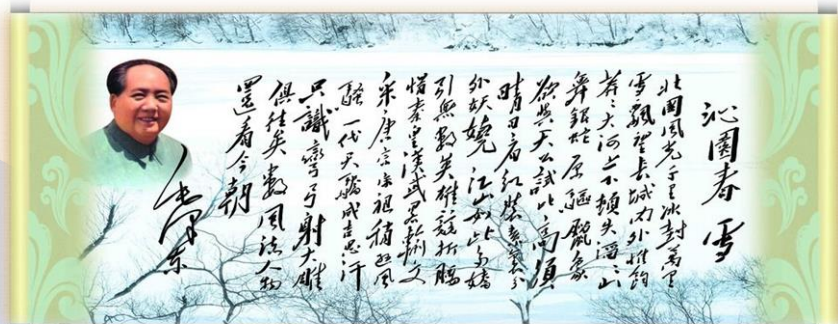 沁園春 雪
北國風光千里冰封萬里
雪飄望長城內外惟餘
莽々大河上下頓失滔々山
舞銀蛇原馳臘象
欲與天公試比高須
晴日看紅裝素裹分
外妖嬈 江山如此多嬌
引無數英雄競折腰
惜秦皇漢武略輸文
采唐宗宋祖稍遜風
騷一代天驕成吉思汗
只識彎弓射大雕
俱往矣數風流人物
還看今朝
毛澤東